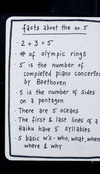 facts about the no. 5
· 2 + 3 = 5
· # of olympic rings
· 5 is the number of
completed piano concertos
by Beethoven
· 5 is the number of sides
on a pentagon
· There are 5 oceans
· The first & last lines of a
Haiku have 5 syllables
· 5 basic w's - who, what, when,
where & why